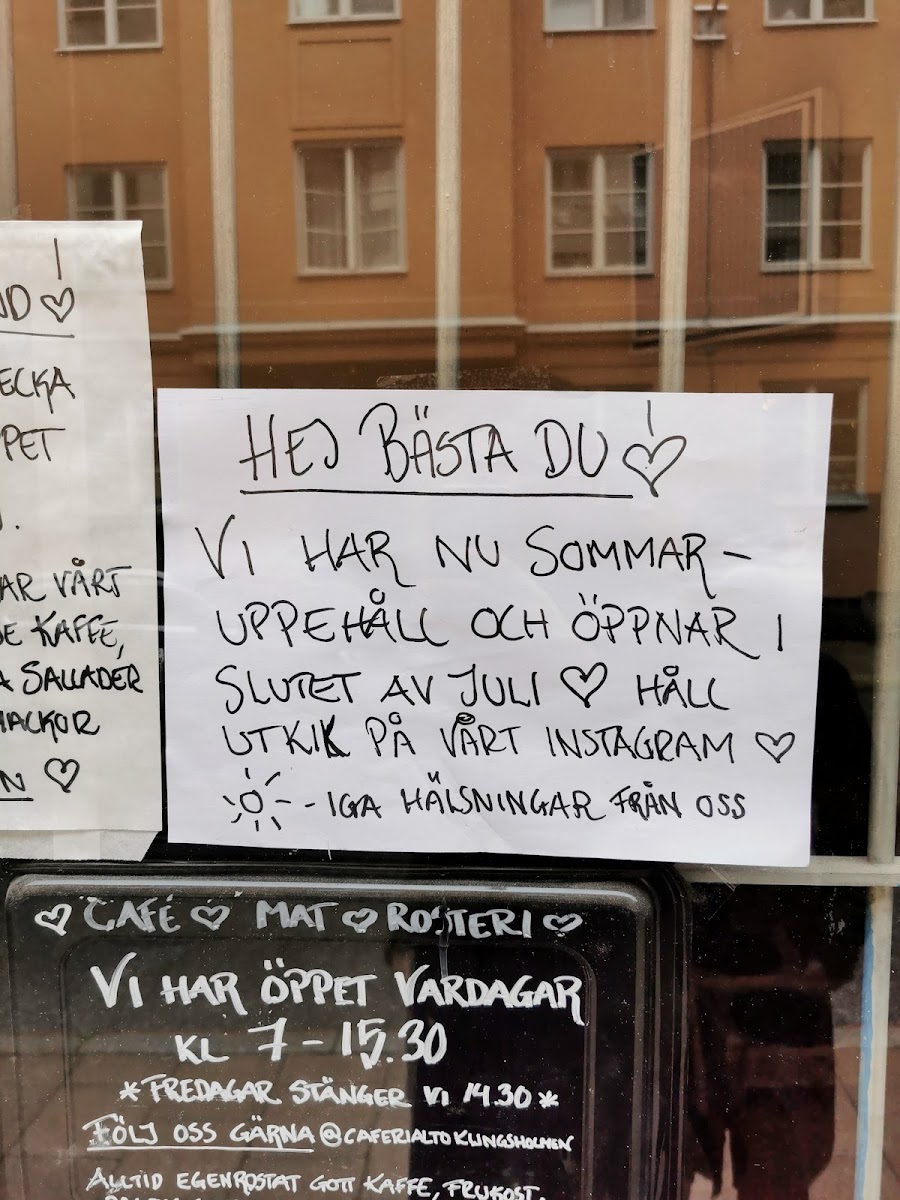 ND
ECKA
PPET
AR VÅRT
KAFFE,
SALLADER
MACKOR
N
HEJ BÄSTA DU
VI HAR NU SOMMAR-
UPPEHÅLL OCH ÖPPNAR I
SLUTET AV JULI HÅLL
UTKIK PÅ VÅRT INSTAGRAM
-IGA HÄLSNINGAR FRÅN OSS
CAFÉ MAT ROSTERI
VI HAR ÖPPET VARDAGAR
KL 7-15.30
*FREDAGAR STÄNGER VI 14.30*
FÖLJ OSS GÄRNA @CAFERIALTOKUNGSHOLMEN
ALLTID EGENROSTAT GOTT KAFFE, FRUKOST,